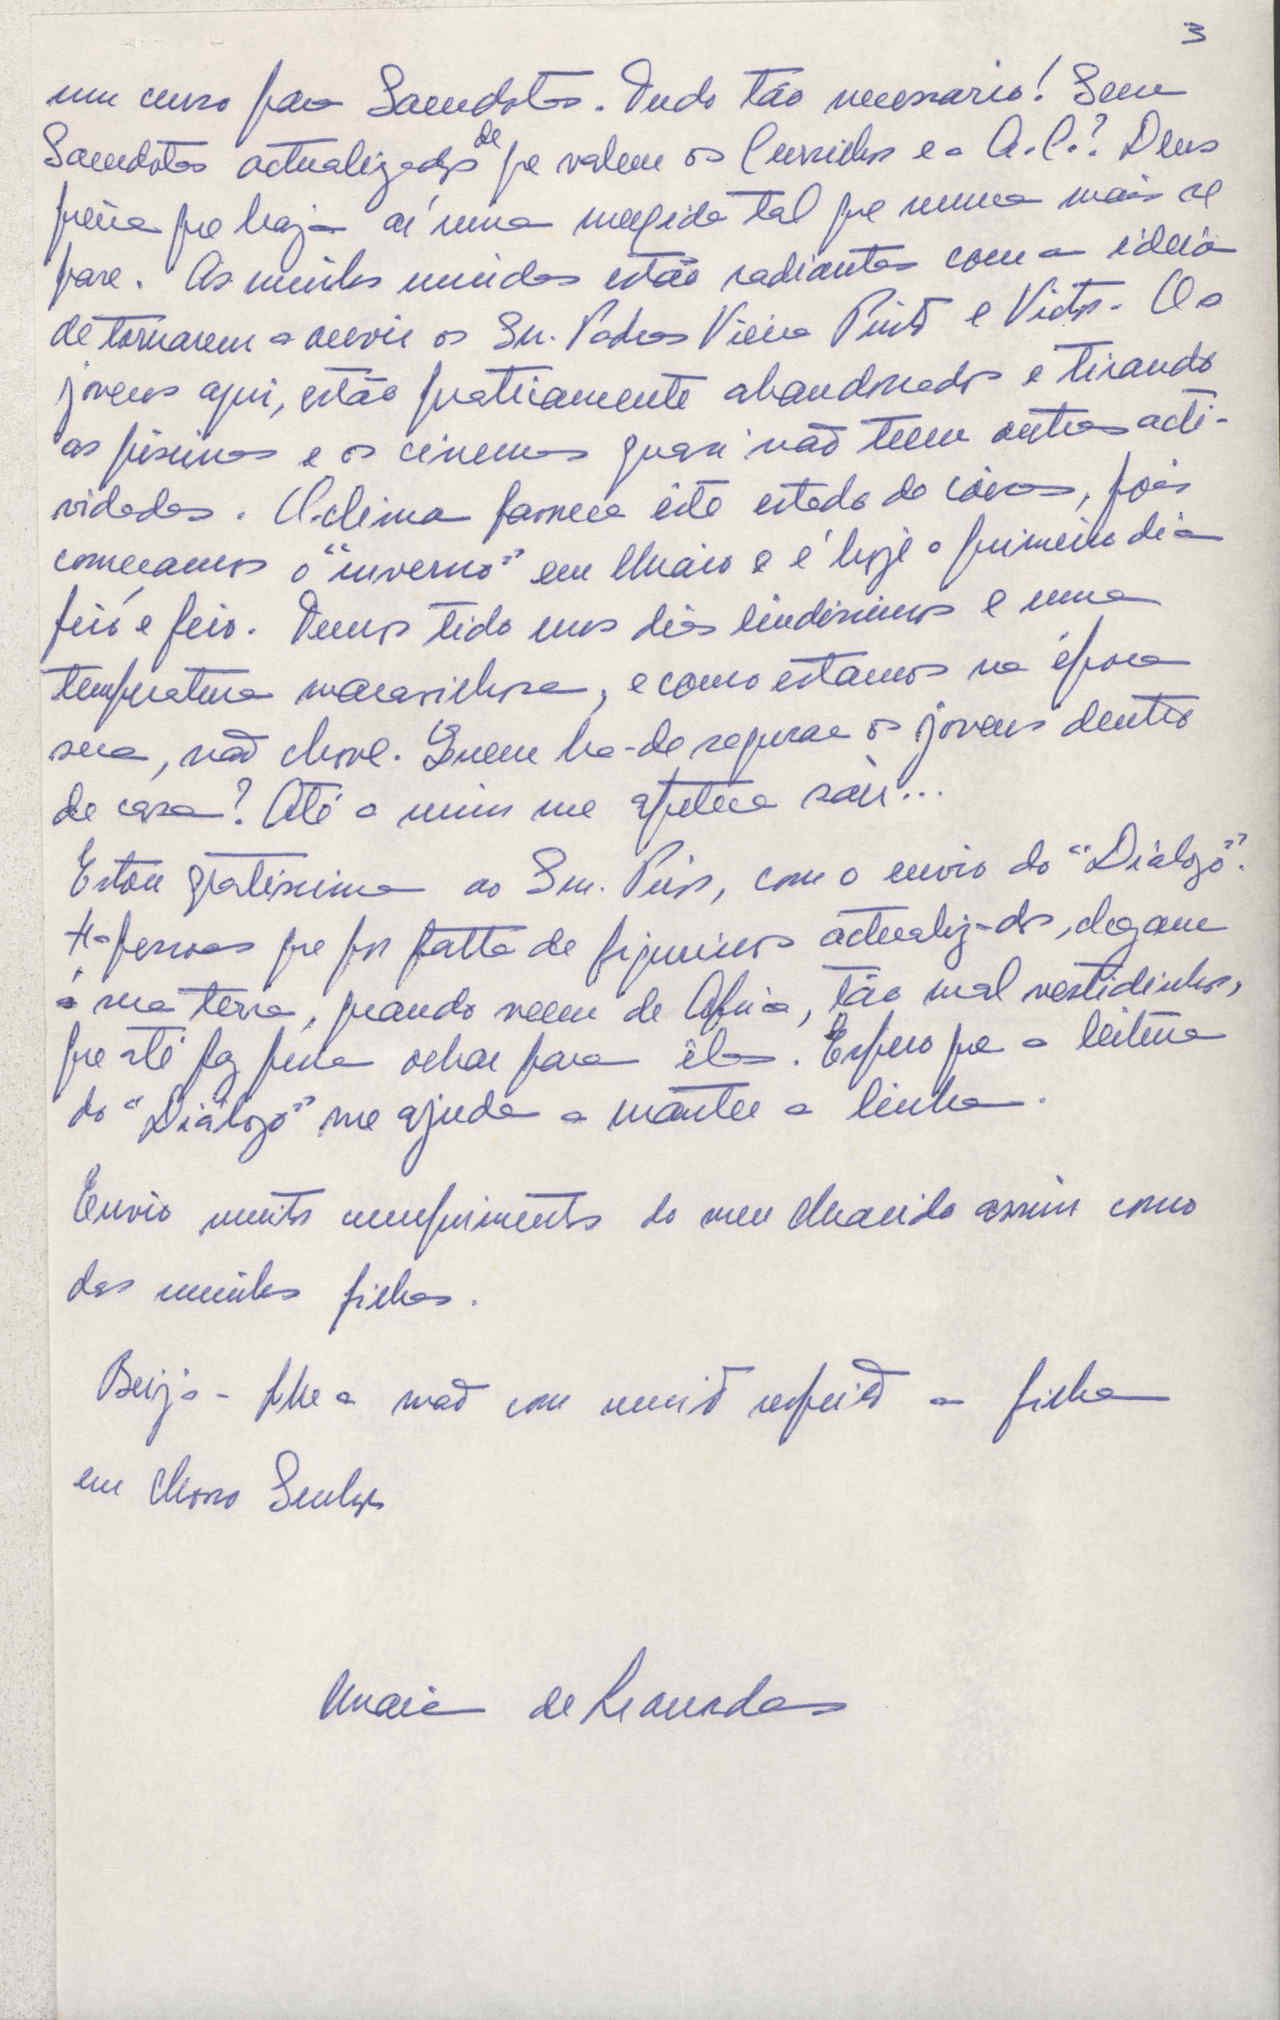 3
um curso para Sacerdotes. Tudo tão necessario! Sem
Sacerdotes actualizados de que valem os Cursilhos e a A.C.? Deus
queira que haja aí uma mexida tal que nunca mais se
pare. As minhas miudas estão radiantes com a ideia
de tornarem a ouvir os Sn. Padres Vieira Pinto e Victor. Os
jovens aqui, estão praticamente abandonados e tirando
as piscinas e os cinemas quasi não teem outras acti-
vidades. O clima favorece êste estado de coisas, pois
começamos o "inverno" em Maio e é hoje o primeiro dia
frio e feio. Temos tido uns dias lindissimos e uma
temperatura maravilhosa, e como estamos na época
seca, não chove. Quem ha-de segurar os jovens dentro
de casa? Até a mim me apetece sair...
Estou gratissima ao Snr. Pires, com o envio do "Diálogo".
Ha pessoas que por falta de figurinos actualizados, chegam
á sua terra, quando veem de Africa, tão mal vestidinhas,
que até faz pena olhar para elas. Espero que a leitura
do "Diálogo" me ajude a manter a linha.
Envio muitos cumprimentos do meu Marido assim como
das minhas filhas.
Beija-lhe a mão com muito respeito a filha
em Nosso Senhor
Maria de Lourdes